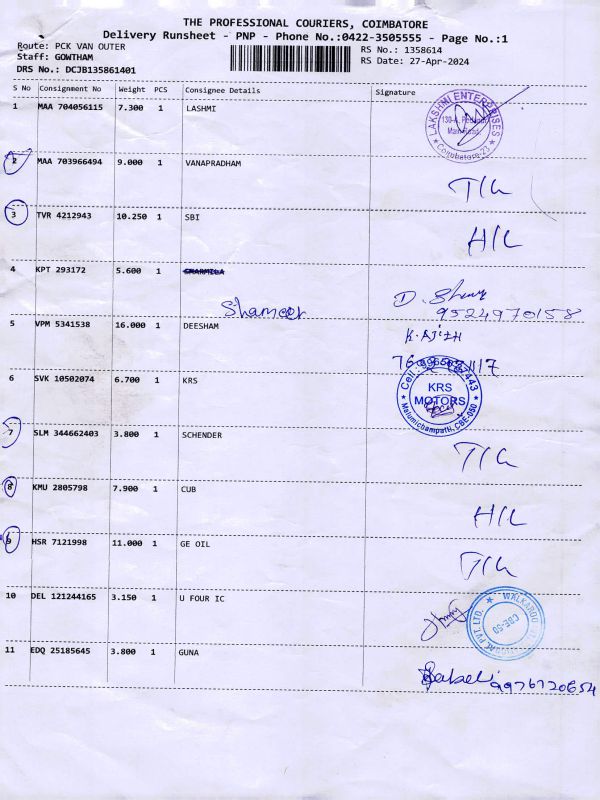 THE PROFESSIONAL COURIERS, COIMBATORE
Delivery Runsheet - PNP - Phone No.:0422-3505555 - Page No.:1
Route: PCK VAN OUTER
RS No.: 1358614
Staff: GOWTHAM
RS Date: 27-Apr-2024
DRS No.: DCJB135861401
S No Consignment No Weight PCS Consignee Details Signature
1 MAA 704056115 7.300 1 LASHMI
LAKSHMI ENTERPRISES
Main Road,
Coimbatore-23
2 MAA 703966494 9.000 1 VANAPRADHAM
T/L
3 TVR 4212943 10.250 1 SBI
H/L
4 KPT 293172 5.600 1 SHARMILA
Shameer
D.
9524970158
5 VPM 5341538 16.000 1 DEESHAM
K. AJITH
6 SVK 10502074 6.700 1 KRS
KRS
MOTORS
Malumichampatti, CBE-050
7 SLM 344662403 3.800 1 SCHENDER
T/L
8 KMU 2805798 7.900 1 CUB
H/L
9 HSR 7121998 11.000 1 GE OIL
T/L
10 DEL 121244165 3.150 1 U FOUR IC
WALKAROO
PVT.LTD.
CBE-50
11 EDQ 25185645 3.800 1 GUNA
9976720654